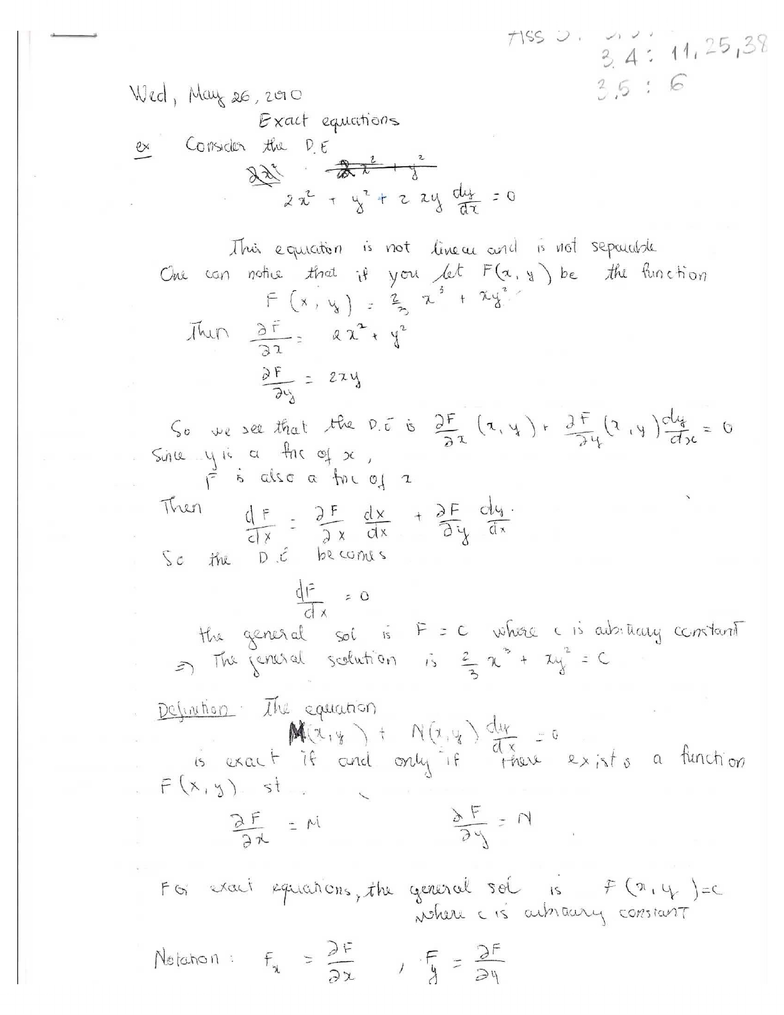 Ass 3 :
3.4 : 11, 25, 38
3.5 : 6
Wed, May 26, 2010
Exact equations
ex Consider the D.E
2x² + y² + 2xy dy/dx = 0
This equation is not linear and is not separable
One can notice that if you let F(x, y) be the function
F(x, y) = 2/3 x³ + xy²
Then ∂F/∂x = 2x² + y²
∂F/∂y = 2xy
So we see that the D.E is ∂F/∂x (x, y) + ∂F/∂y (x, y) dy/dx = 0
Since y is a fnc of x,
F is also a fnc of x
Then dF/dx = ∂F/∂x dx/dx + ∂F/∂y dy/dx.
So the D.E becomes
dF/dx = 0
the general sol is F = C where c is arbitrary constant
⇒ The general solution is 2/3 x³ + xy² = C
Definition: The equation
M(x, y) + N(x, y) dy/dx = 0
is exact if and only if there exists a function
F(x, y) st.
∂F/∂x = M ∂F/∂y = N
For exact equations, the general sol is F(x, y) = c
where c is arbitrary constant
Notation: Fx = ∂F/∂x , Fy = ∂F/∂y